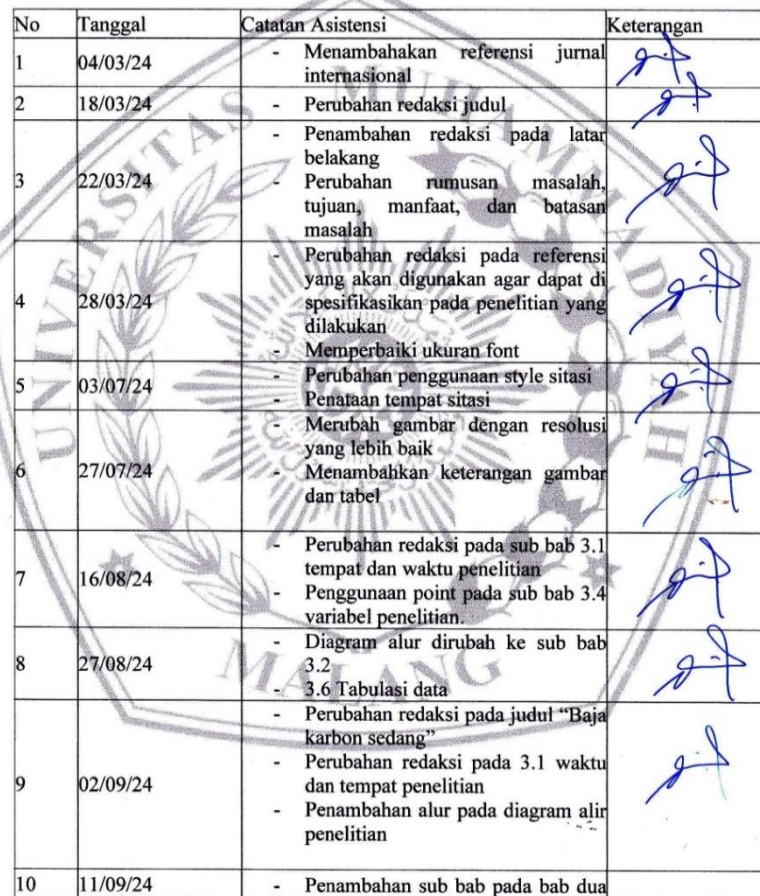 No Tanggal Catatan Asistensi Keterangan
1 04/03/24 - Menambahakan referensi jurnal
internasional
2 18/03/24 - Perubahan redaksi judul
3 22/03/24 - Penambahan redaksi pada latar
belakang
- Perubahan rumusan masalah,
tujuan, manfaat, dan batasan
masalah
4 28/03/24 - Perubahan redaksi pada referensi
yang akan digunakan agar dapat di
spesifikasikan pada penelitian yang
dilakukan
- Memperbaiki ukuran font
5 03/07/24 - Perubahan penggunaan style sitasi
- Penataan tempat sitasi
6 27/07/24 - Merubah gambar dengan resolusi
yang lebih baik
- Menambahkan keterangan gambar
dan tabel
7 16/08/24 - Perubahan redaksi pada sub bab 3.1
tempat dan waktu penelitian
- Penggunaan point pada sub bab 3.4
variabel penelitian.
8 27/08/24 - Diagram alur dirubah ke sub bab
3.2
- 3.6 Tabulasi data
9 02/09/24 - Perubahan redaksi pada judul “Baja
karbon sedang”
- Perubahan redaksi pada 3.1 waktu
dan tempat penelitian
- Penambahan alur pada diagram alir
penelitian
10 11/09/24 - Penambahan sub bab pada bab dua
UNIVERSITAS MUHAMMADIYAH
MALANG